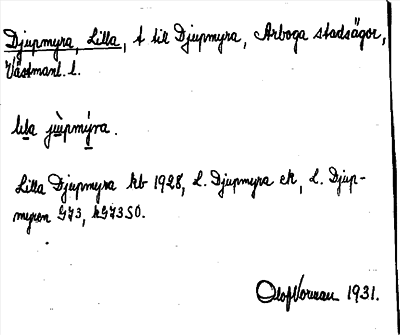 Djupmyra, Lilla, t till Djupmyra, Arboga stadsägor,
Västmanl. l.
lila jùpmýra.
Lilla Djupmyra kb 1928, L. Djupmyra ek, L. Djup-
myran GJ3, hGJ3SO.
Olof Vorman 1931.